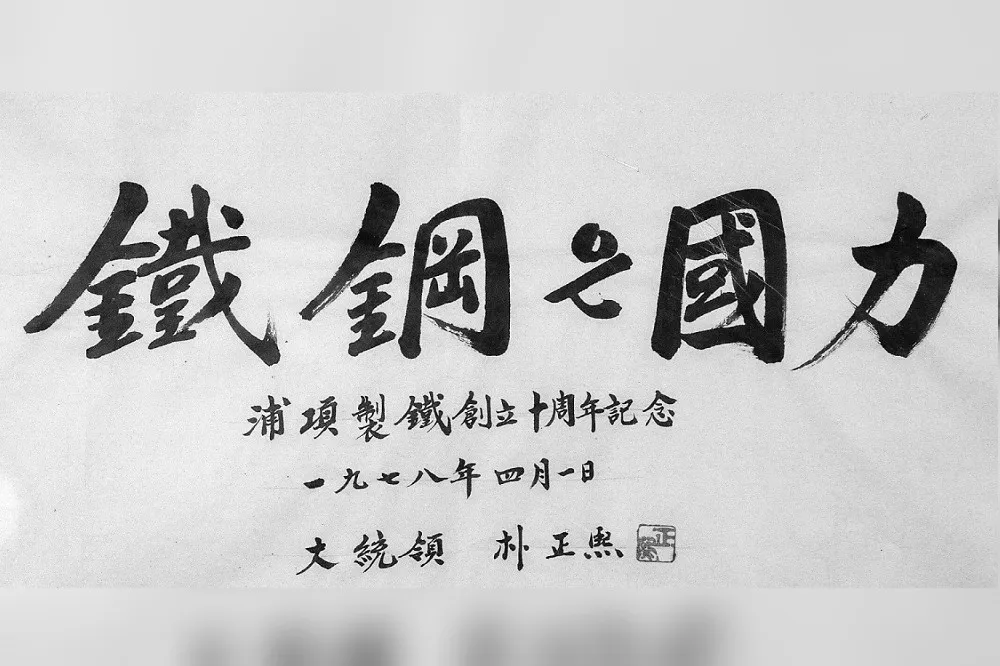 鐵鋼은國力
浦項製鐵創立十周年記念
一九七八年 四月一日
大統領 朴正熙
正熙